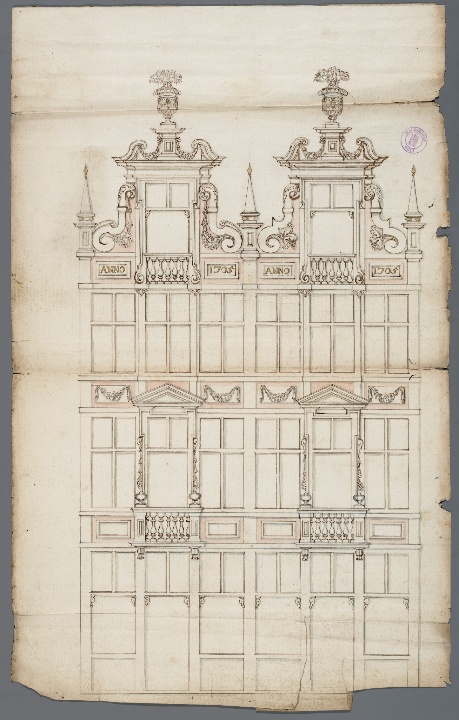 ANNO
1705
ANNO
1705